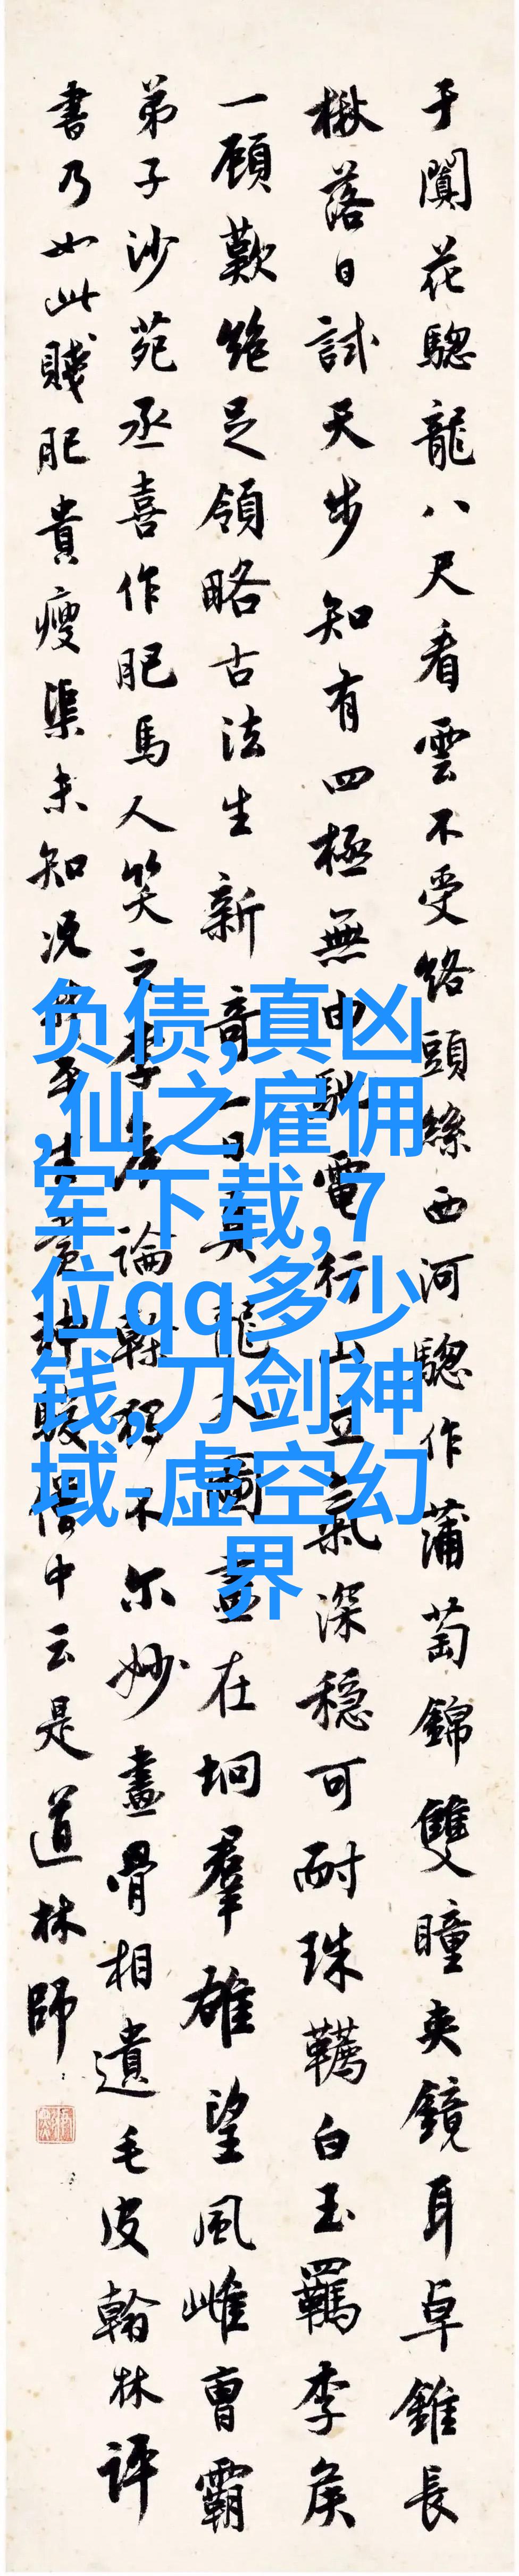 于闐花驄龍八尺看雲不受絡頭絲西河驄作蒲萄錦雙瞳夾鏡耳卓錐長
楸落日試天步知有四極無由馳電行山立氣深穩可耐珠韉白玉羈李侯
一顧歎絶足領略古法生新奇一日真龍入圖畫在坰羣雄望風雌曹霸
弟子沙苑丞喜作肥馬人笑之李侯論幹獨不尔妙畫骨相遺毛皮翰林評
書乃如此賤肥貴瘦渠未知况
中云是道林師
负债,真凶
,仙之雇佣
军下载,7
位qq多少
钱,刀剑神
域-虚空幻
界